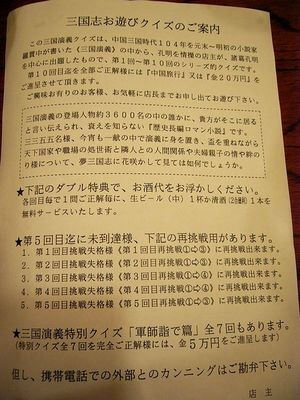 三国志お遊びクイズのご案内
この三国演義クイズは、中国三国時代１０４年を元末～明初の小説家
羅貫中が書いた《三国演義》の中から、孔明を情檄の店主が、諸葛孔明を
中心に出題したもので、第１回～第１０回のシリーズ的クイズです。
第１０回目迄を全部ご正解様には『中国旅行』又は『金２０万円』を
ご進呈させて頂きます。
ご興味お有りのお客様、お気軽に店長までお申し出てお遊び下さい。
三国演義の登場人物約３６００名の中の誰かに、貴方がそこに居る
と言い伝えられ、衰えを知らない『歴史長編ロマン小説』です。
三三五五名様、今宵も一献の中で演義に身を置き、盃を重ねながら
天下国家や職場の処世術と隣人との人間関係や夫婦親子の情や絆の
り様について、夢三国志に花咲かして見ては如何でしょうか。
★下記のダブル特典で、お酒代をお浮かしください。
各回目毎で１問ご正解毎に、生ビール（中）１杯か清酒(2合瓶)１本を
無料サービスいたします。
★第５回目迄に未到達様、下記の再挑戦用があります。
１．第１回目挑戦失格様《第１回目再挑戦①⇨③》に再挑戦出来ます。
２．第２回目挑戦失格様《第２回目再挑戦①⇨③》に再挑戦出来ます。
３．第３回目挑戦失格様《第３回目再挑戦①⇨④》に再挑戦出来ます。
４．第４回目挑戦失格様《第４回目再挑戦①⇨④》に再挑戦出来ます。
５．第５回目挑戦失格様《第５回目再挑戦①⇨③》に再挑戦出来ます。
★三国演義特別クイズ「軍師詣で篇」全７回もあります。
(特別クイズ全７回を完全ご正解様には、金５万円をご進呈します)
但し、携帯電話での外部とのカンニングはご勘弁下さい。
店　主